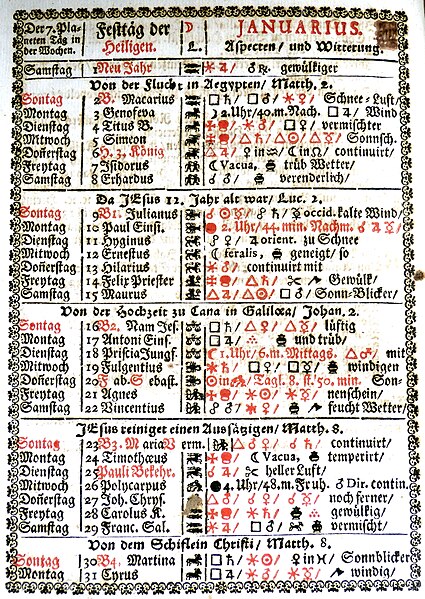 Der 7. Planeten Tåg in der Wochen.
Festtåg der Heiligen.
☽ L.
JANUARIUS.
Aspecten/ und Witterung.
Samstag 1 Neu Jahr ✶♃/ ♂℞. gewülkiger
Von der Flucht in Aegypten/ Matth. 2.
Sontag 2 B. Macarius □♄/ □♂/ ✶♀/ Schnee-Luft/
Montag 3 Genofeva 2.Uhr/40.m.Nach. □♃/ Wind
Dienstag 4 Titus B. vermischter
Mitwoch 5 Simeon Sonnsch.
Doñerstag 6 H. 3. König continuirt/
Freytag 7 Isidorus ☾Vacua, trüb Wetter/
Samstag 8 Erhardus verenderlich/
Da JEsus 12. Jahr alt war/ Luc. 2.
Sontag 9 B1. Julianus occid. kalte Wind/
Montag 10 Paul Einsi. 2. Uhr/44. min. Nachm.
Dienstag 11 Hyginus ☍/ ♀♃orient. zu Schnee
Mitwoch 12 Ernestus feralis, geneigt/ so
Doñerstag 13 Hilarius continuirt mit
Freytag 14 Felix Priester Gewülk/
Samstag 15 Maurus △♃/ △☉/ □♂/ Sonn-Blicker/
Von der Hochzeit zu Cana in Galilæa/ Johan. 2.
Sontag 16 B2. Nam Jes. □♄/ △♀/ △☿/ lüftig
Montag 17 Antoni Eins. □♃/ und trüb/
Dienstag 18 PristiaJungf. ☾1.Uhr/6.m.Mittags. △♂/ mit
Mitwoch 19 Fulgentius windigen
Doñerstag 20 F ab. S ebast. Tagl. 8. st. 50. min. Son-
Freytag 21 Agnes nenschein/
Samstag 22 Vincentius feucht Wetter/
JEsus reiniget einen Aussätzigen/ Matth. 8.
Sontag 23 B3. M ariaV erm. continuirt/
Montag 24 Timothæus ☾Vacua, temperirt/
Dienstag 25 Pauli Bekehr. heller Luft/
Mitwoch 26 Polycarpus 4. Uhr/48.m. Fruh. ♂ Dir. contin.
Doñerstag 27 Joh. Chrys. noch ferner/
Freytag 28 Carolus K. gewülkig/
Samstag 29 Franc. Sal. vermischt/
Von dem Schiflein Christi/ Matth. 8.
Sontag 30 B4. Martina Sonnblicker
Montag 31 Cyrus windig/